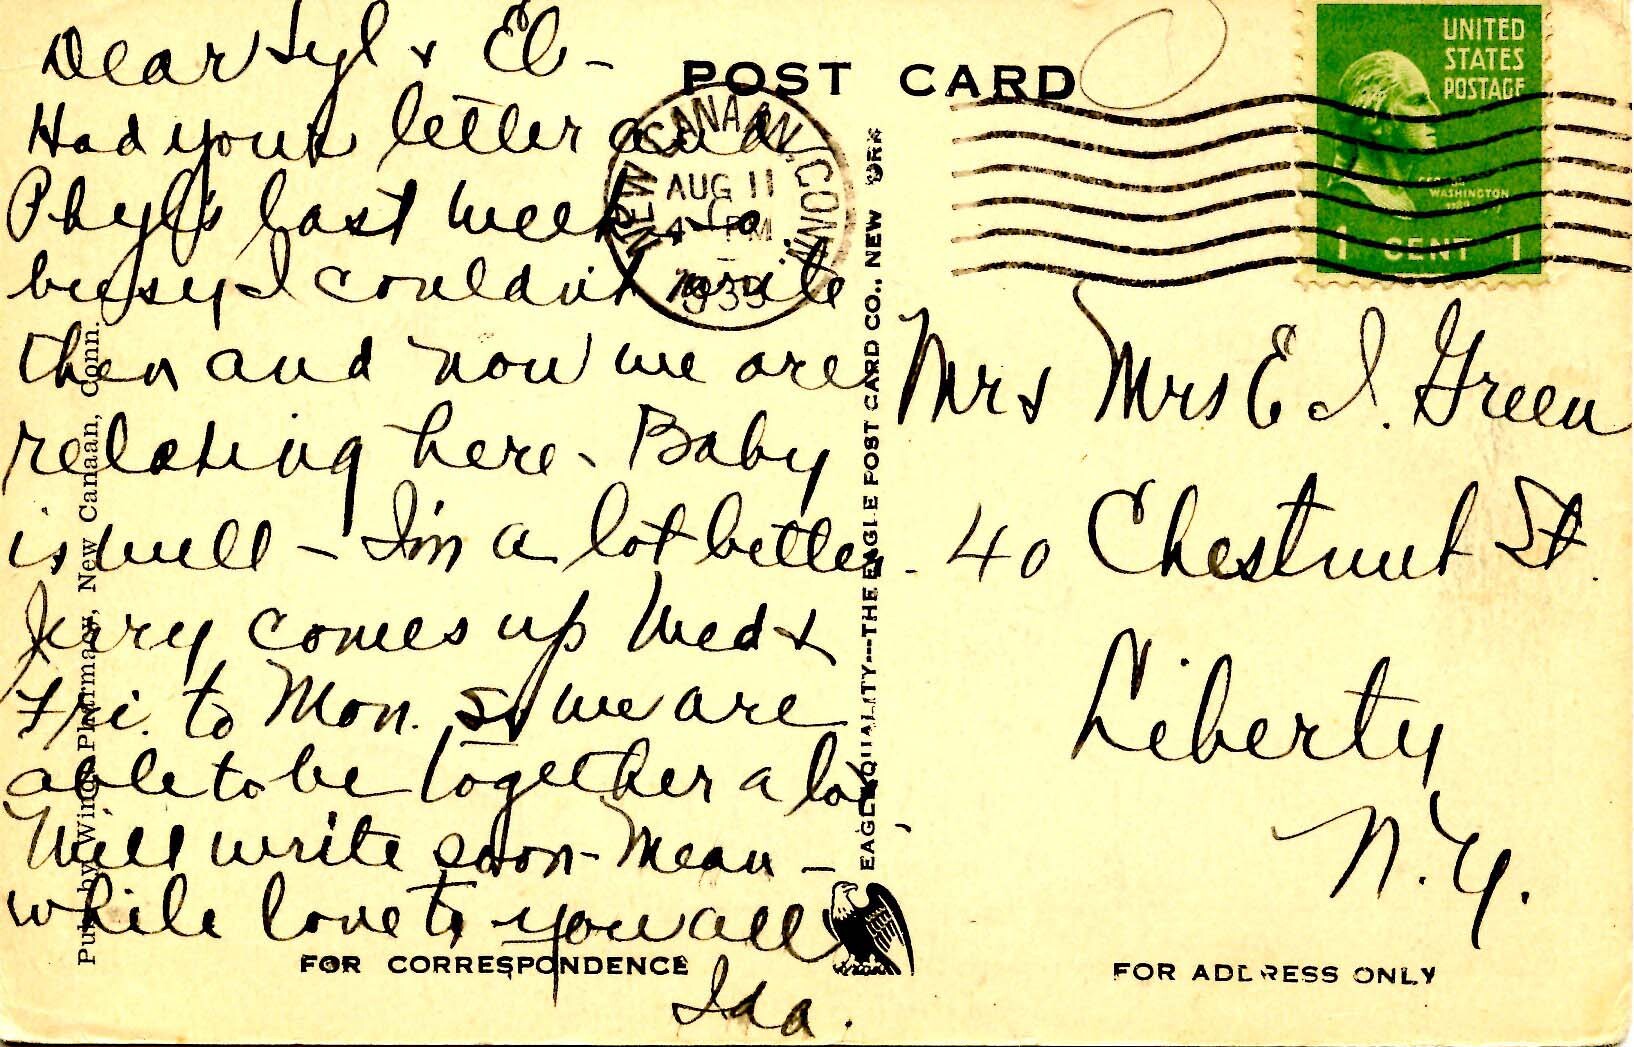 POST CARD
Dear Syl & El -
Had your letter and
Phyl's last week - so
busy I couldn't write
then and now we are
relaxing here - Baby
is well - I'm a lot better -
Jerry comes up Wed &
Fri. to Mon. so we are
able to be together a lot
Will write soon - Mean -
while love to you all
Ida.
FOR CORRESPONDENCE
Pub. by Wing's Pharmacy, New Canaan, Conn.
EAGLE QUALITY---THE EAGLE POST CARD CO., NEW YORK
NEW CANAAN, CONN.
AUG 11
4 PM
UNITED
STATES
POSTAGE
WASHINGTON
1 CENT 1
Mr & Mrs E I. Green
40 Chestnut St.
Liberty
N.Y.
FOR ADDRESS ONLY